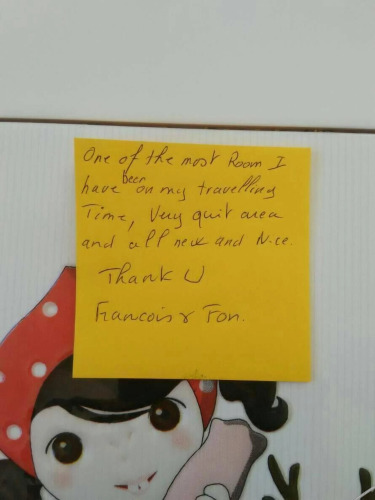 One of the most Room I
have been on my travelling
Time, Very quit area
and all new and Nice.
Thank U
Francois & Ton.